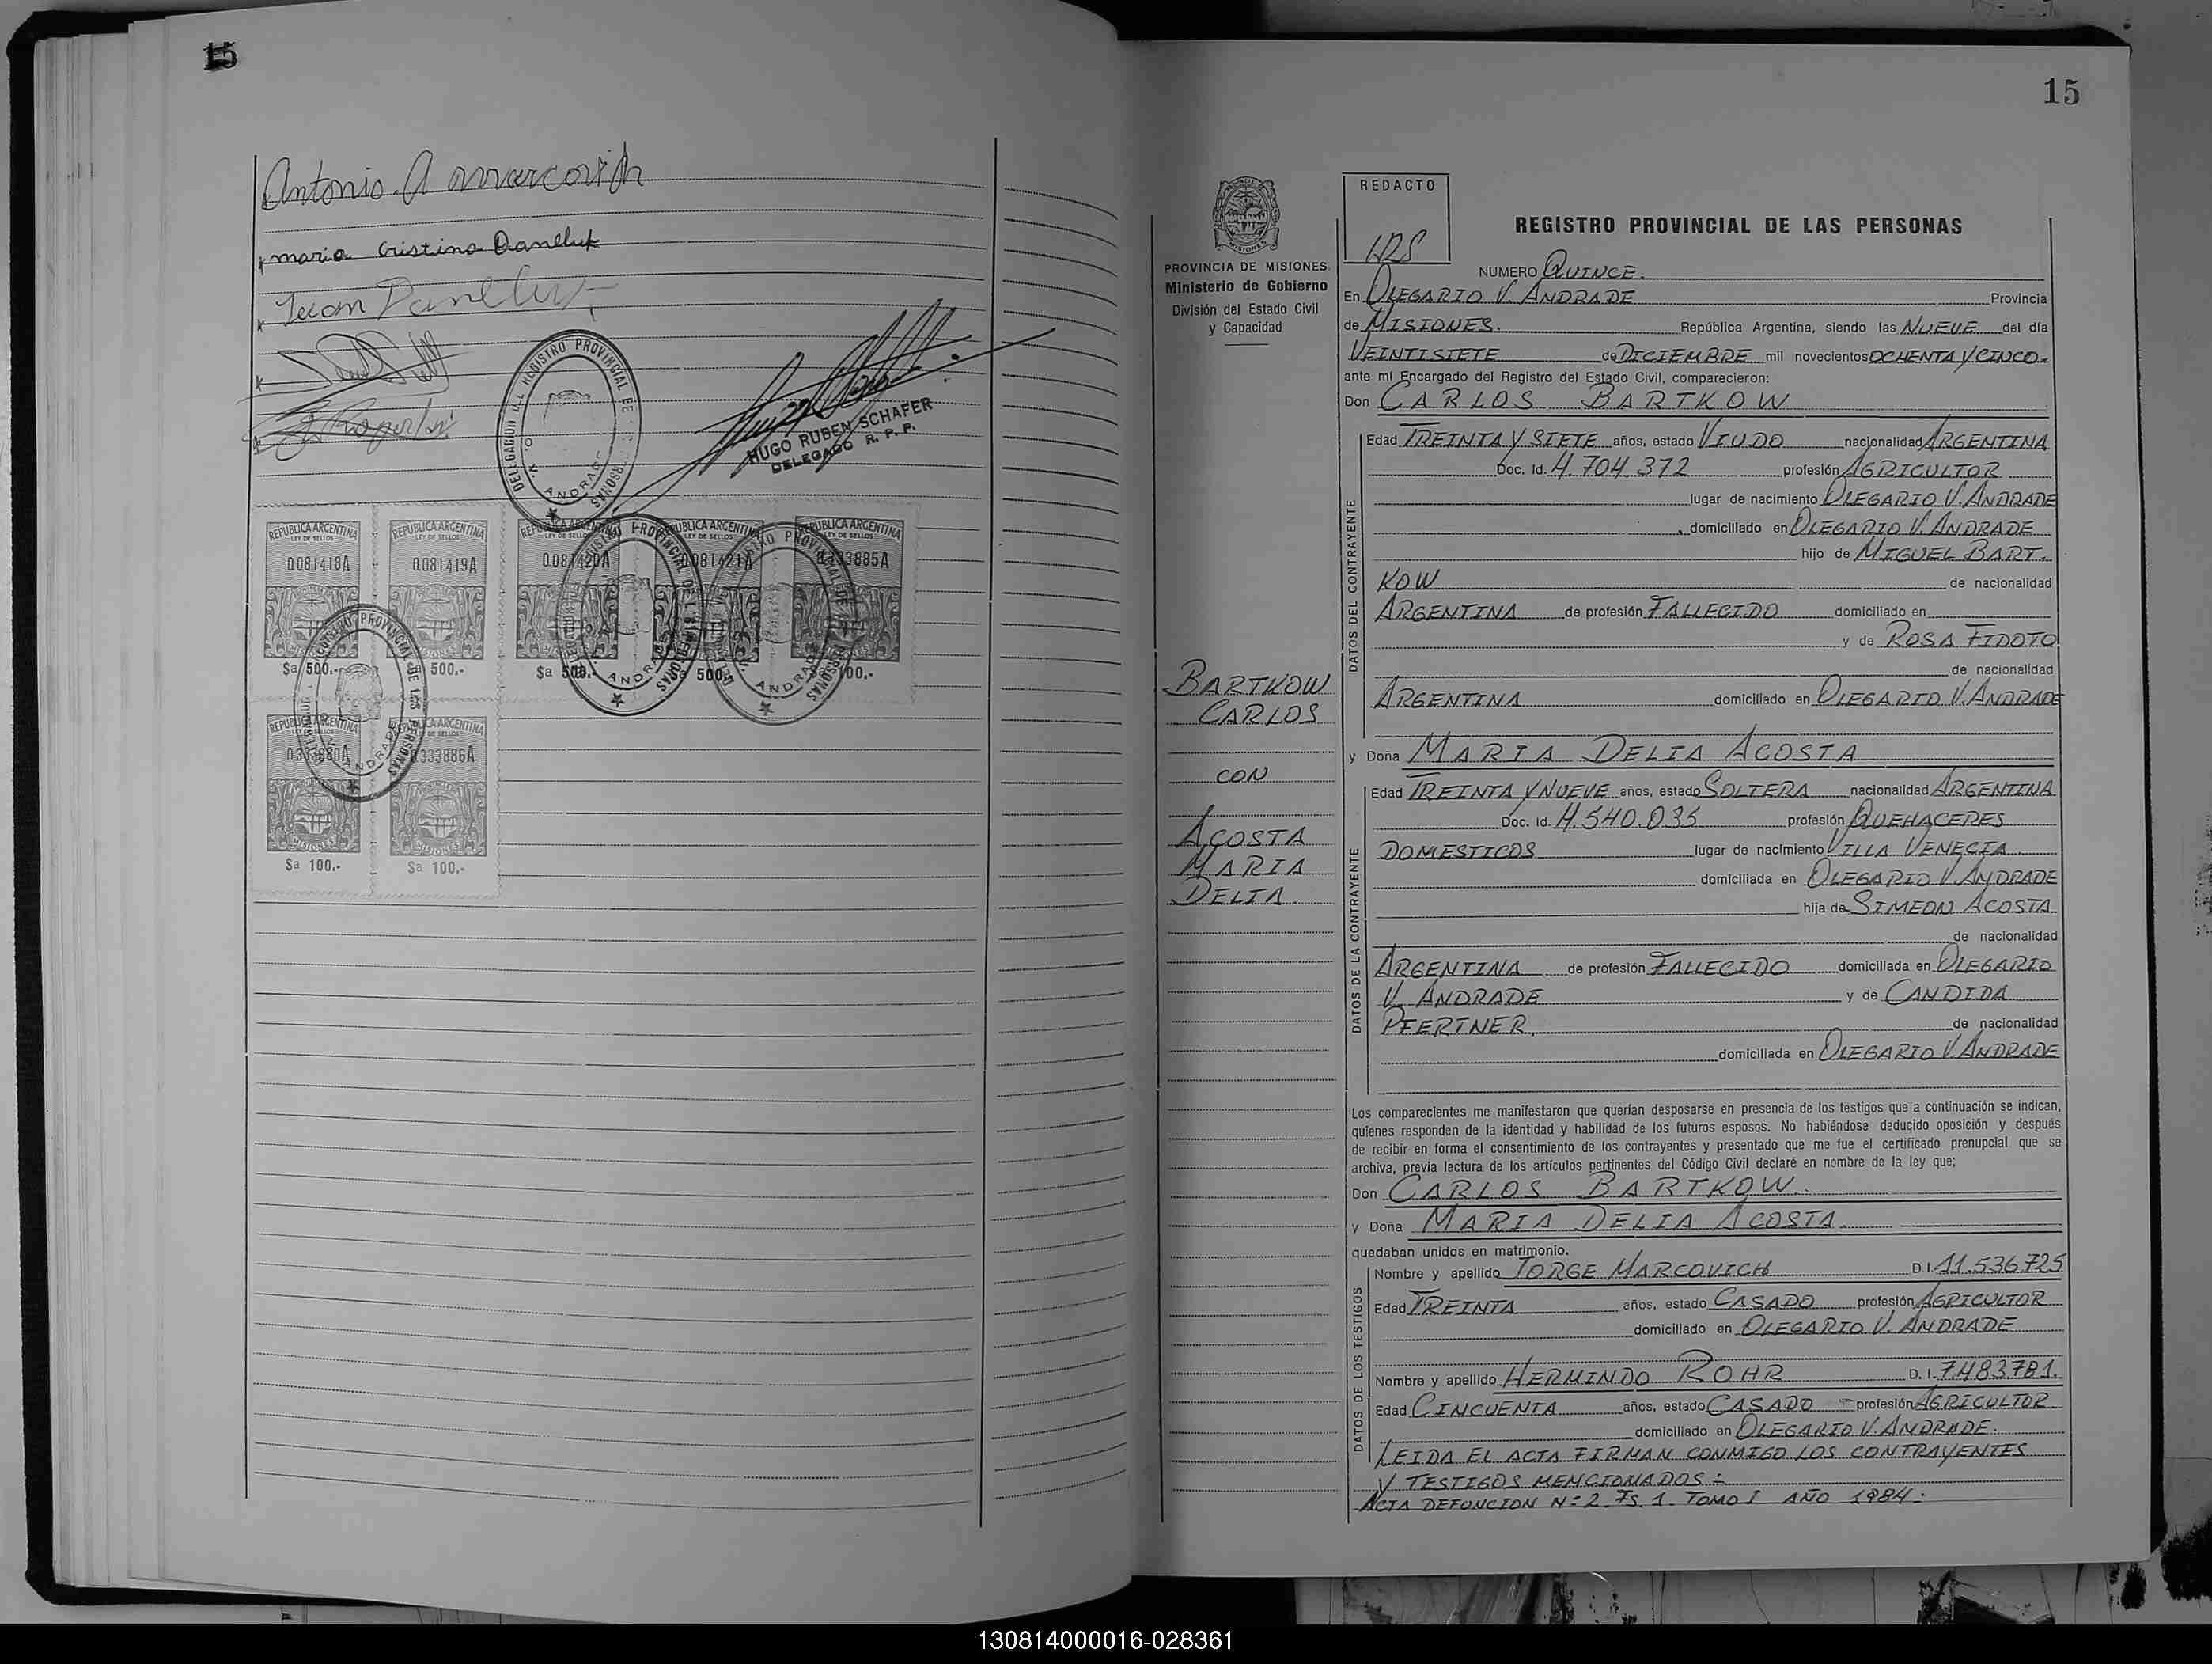 15
Antonio. A Marcovich
maria Cristina Daneluk
Juan Daneluk
DELEGACION DEL REGISTRO PROVINCIAL DE LAS PERSONAS
O. V. ANDRADE
HUGO RUBEN SCHAFER
DELEGADO R. P. P.
REPUBLICA ARGENTINA REPUBLICA ARGENTINA REPUBLICA ARGENTINA REPUBLICA ARGENTINA REPUBLICA ARGENTINA
LEY DE SELLOS LEY DE SELLOS LEY DE SELLOS LEY DE SELLOS LEY DE SELLOS
0.081418A 0.081419A 0.081420A 0.081421A 0.333885A
$a 500.- 500.- $a 500.- $a 500.- 100.-
REPUBLICA ARGENTINA REPUBLICA ARGENTINA
LEY DE SELLOS LEY DE SELLOS
0.333880A 0.333886A
MISIONES MISIONES
$a 100.- $a 100.-
15
PROVINCIA DE MISIONES
Ministerio de Gobierno
División del Estado Civil
y Capacidad
BARTKOW
CARLOS
CON
ACOSTA
MARIA
DELIA.
REDACTO
HRS
REGISTRO PROVINCIAL DE LAS PERSONAS
NUMERO QUINCE.
En OLEGARIO V. ANDRADE Provincia
de MISIONES. República Argentina, siendo las NUEVE del día
VEINTISIETE de DICIEMBRE mil novecientos OCHENTA Y CINCO.
ante mí Encargado del Registro del Estado Civil, comparecieron:
Don CARLOS BARTKOW
DATOS DEL CONTRAYENTE
Edad TREINTA Y SIETE años, estado VIUDO nacionalidad ARGENTINA
Doc. Id. 4.704.372 profesión AGRICULTOR
lugar de nacimiento OLEGARIO V. ANDRADE
domiciliado en OLEGARIO V. ANDRADE
hijo de MIGUEL BART.
KOW de nacionalidad
ARGENTINA de profesión FALLECIDO domiciliado en
y de ROSA FIDOTO
de nacionalidad
ARGENTINA domiciliado en OLEGARIO V. ANDRADE
y Doña MARIA DELIA ACOSTA
DATOS DE LA CONTRAYENTE
Edad TREINTA Y NUEVE años, estado SOLTERA nacionalidad ARGENTINA
Doc. Id. 4.540.035 profesión QUEHACERES
DOMESTICOS lugar de nacimiento VILLA VENECIA.
domiciliada en OLEGARIO V. ANDRADE
hija de SIMEON ACOSTA
de nacionalidad
ARGENTINA de profesión FALLECIDO domiciliada en OLEGARIO
V. ANDRADE y de CANDIDA
PFERTNER. de nacionalidad
domiciliada en OLEGARIO V. ANDRADE
Los comparecientes me manifestaron que querían desposarse en presencia de los testigos que a continuación se indican,
quienes responden de la identidad y habilidad de los futuros esposos. No habiéndose deducido oposición y después
de recibir en forma el consentimiento de los contrayentes y presentado que me fue el certificado prenupcial que se
archiva, previa lectura de los artículos pertinentes del Código Civil declaré en nombre de la ley que;
Don CARLOS BARTKOW.
y Doña MARIA DELIA ACOSTA.
quedaban unidos en matrimonio.
DATOS DE LOS TESTIGOS
Nombre y apellido JORGE MARCOVICH D.I. 11.536.725
Edad TREINTA años, estado CASADO profesión AGRICULTOR
domiciliado en OLEGARIO V. ANDRADE
Nombre y apellido HERMINDO ROHR D.I. 7.483.781.
Edad CINCUENTA años, estado CASADO profesión AGRICULTOR
domiciliado en OLEGARIO V. ANDRADE.
LEIDA EL ACTA FIRMAN CONMIGO LOS CONTRAYENTES
Y TESTIGOS MENCIONADOS:-
ACTA DEFUNCION Nº 2. Fs. 1. TOMO I AÑO 1984:
130814000016-028361